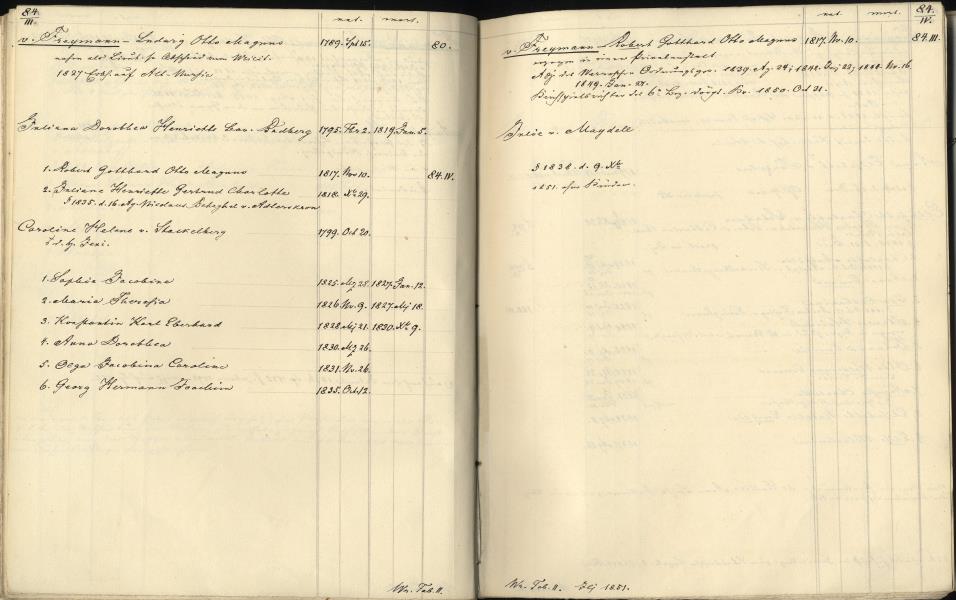 84.
III.
nat. mort.
v. Freymann – Ludwig Otto Magnus 1789. Spt 15. 80.
nahm als Lieut. sn Abschied vom Militr.
1827 Erbh. auf Alt-Nursie
Juliana Dorothea Henriette Bar. Budberg 1795. Fbr 2. 1819. Jan. 5.
1. Robert Gotthard Otto Magnus 1817. Nov 10. 84. IV.
2. Juliane Henriette Gertrud Charlotte 1818. Xbr 29.
§ 1835. d. 16. Ag. Nicolaus Beheghel v. Adlerskron
Caroline Helene v. Stackelberg 1799. Oct 20.
1. Sophie Jacobine 1825. Mz 25. 1827. Jan. 12.
2. Maria Theresia 1826. Nv. 9. 1827. Mj 18.
3. Konstantin Karl Eberhard 1828. Mj 21. 1830. Xbr 9.
4. Anna Dorothea 1830. Mz 26.
5. Olga Jacobina Caroline 1831. Nv. 26.
6. Georg Hermann Joachim 1835. Oct 12.
Wr. Tab. II.
nat. mort.
84.
IV.
v. Freymann – Robert Gotthard Otto Magnus 1817. Nv. 10. 84. III.
erzogen in einer Privatanstalt
Adj. des Werroschen Ordnungsger. 1839. Ag. 24; 1842. Dej 23; 1848. Nv. 16
1849. Jan. 21.
Kirchspielsrichter des 6n Bez. Dörpt. Kr. 1850. Oct 21.
Julie v. Maydell
§ 1838. d. 9. Xbr
1851. ohne Kinder.
Wr. Tab. II. Jlj 1851.